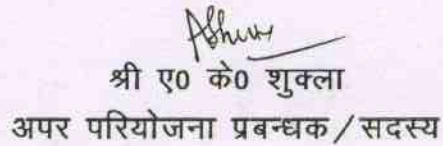 श्री ए0 के0 शुक्ला
अपर परियोजना प्रबन्धक / सदस्य